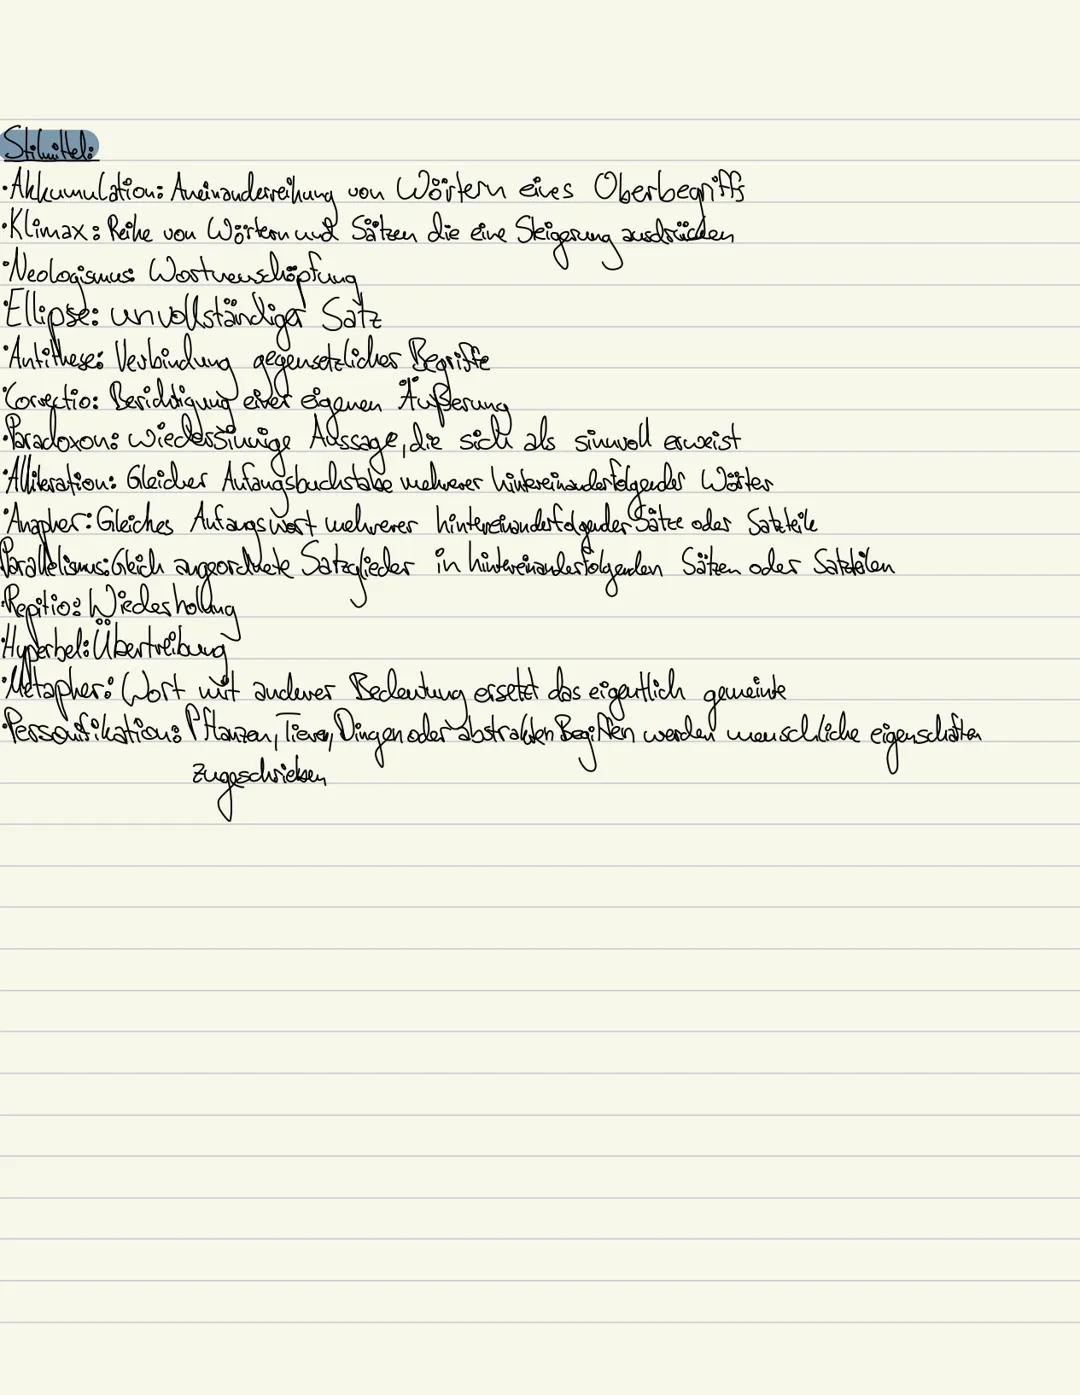 Stilmittel:
•Akkumulation: Aneinanderreihung von Wörtern eines Oberbegriffs
•Klimax: Reihe von Wörtern und Sätzen die eine Steigerung ausdrücken
•Neologismus: Wortneuschöpfung
•Ellipse: unvollständiger Satz
•Antithese: Verbindung gegensetzlicher Begriffe
•Correctio: Berichtigung einer eigenen Äußerung
•Paradoxon: wiedersinnige Aussage, die sich als sinnvoll erweist
•Alliteration: Gleicher Anfangsbuchstabe mehrerer hintereinanderfolgender Wörter
•Anapher: Gleiches Anfangswort mehrerer hintereinanderfolgender Sätze oder Satzteile
Parallelismus: Gleich angeordnete Satzglieder in hintereinanderfolgenden Sätzen oder Satzteilen
•Repitio: Wiederholung
•Hyperbel: Übertreibung
•Metapher: Wort mit anderer Bedeutung ersetzt das eigentlich gemeinte
•Personifikation: Pflanzen, Tieren, Dingen oder abstrakten Begiffen werden menschliche eigenschaften
zugeschrieben